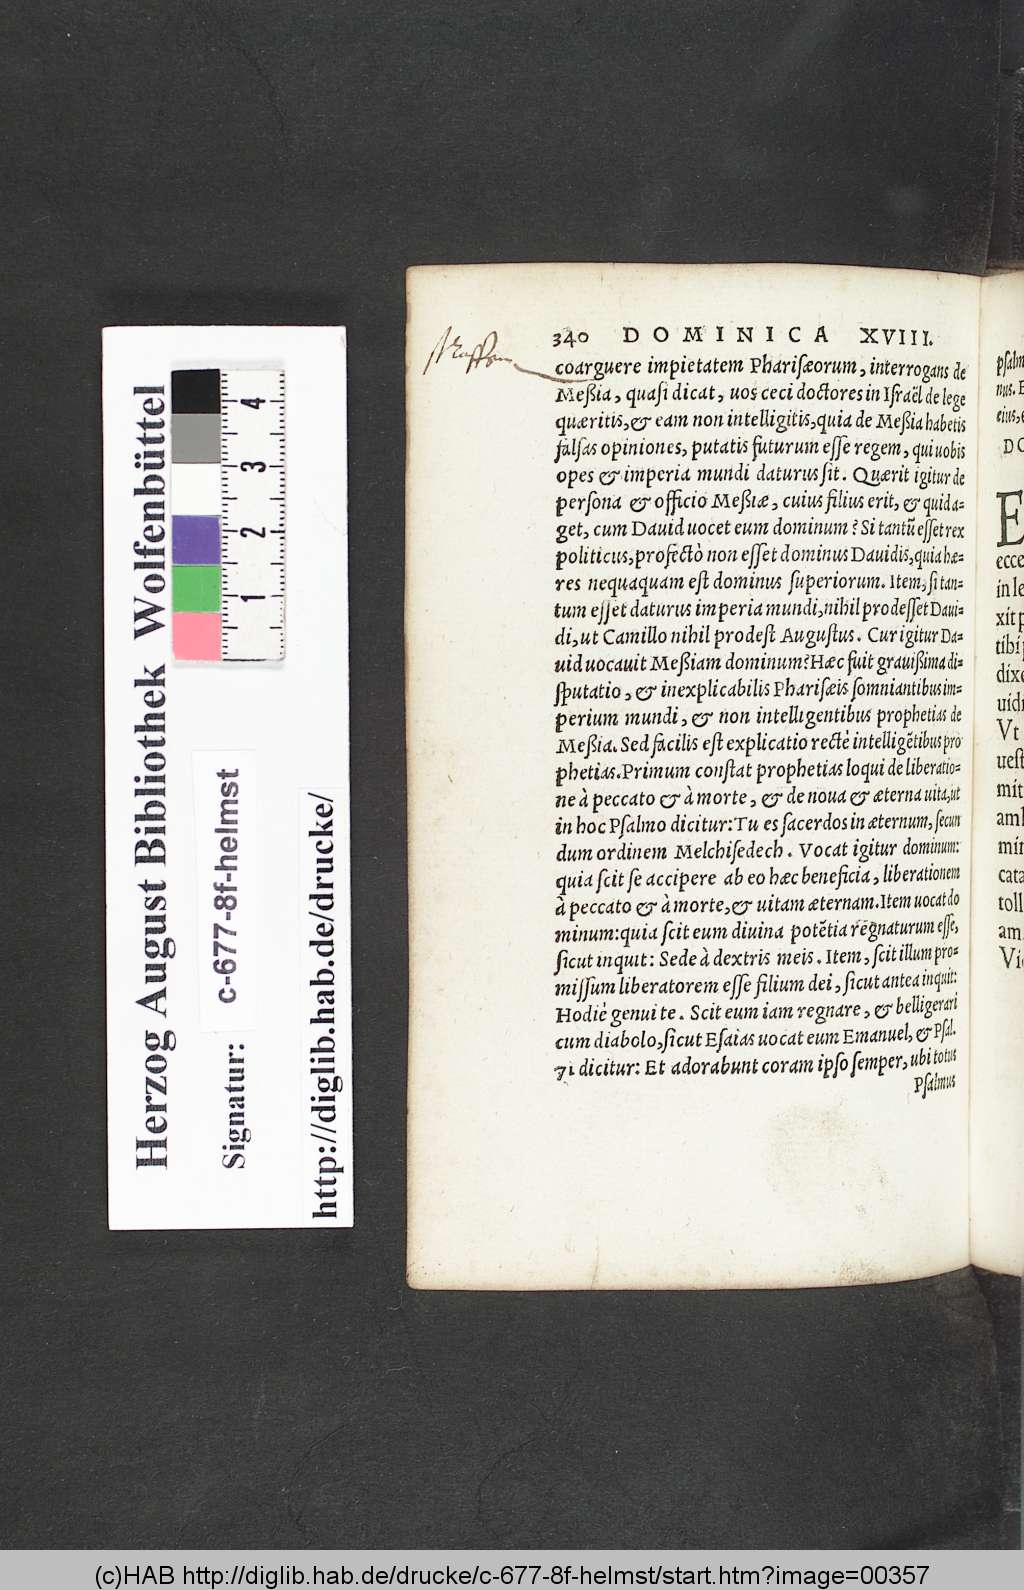 Herzog August Bibliothek Wolfenbüttel
Signatur: c-677-8f-helmst
http://diglib.hab.de/drucke/
1 2 3 4
340 DOMINICA XVIII.
coarguere impietatem Phariſæorum, interrogans de
Meßia, quaſi dicat, uos ceci doctores in Iſraël de lege
quæritis, & eam non intelligitis, quia de Meßia habetis
falſas opiniones, putatis futurum eſſe regem, qui uobis
opes & imperia mundi daturus ſit. Quærit igitur de
perſona & officio Meßiæ, cuius filius erit, & quid a=
get, cum Dauid uocet eum dominum? Si tantũ eſſet rex
politicus, profectò non eſſet dominus Dauidis, quia hæ=
res nequaquam eſt dominus ſuperiorum. Item, ſi tan=
tum eſſet daturus imperia mundi, nihil prodeſſet Daui=
di, ut Camillo nihil prodeſt Auguſtus. Cur igitur Da=
uid uocauit Meßiam dominum? Hæc fuit grauißima di=
ſputatio, & inexplicabilis Phariſæis ſomniantibus im=
perium mundi, & non intelligentibus prophetias de
Meßia. Sed facilis eſt explicatio rectè intelligẽtibus pro
phetias. Primum conſtat prophetias loqui de liberatio=
ne à peccato & à morte, & de noua & æterna uita, ut
in hoc Pſalmo dicitur: Tu es ſacerdos in æternum, ſecun
dum ordinem Melchiſedech. Vocat igitur dominum:
quia ſcit ſe accipere ab eo hæc beneficia, liberationem
à peccato & à morte, & uitam æternam. Item uocat do
minum: quia ſcit eum diuina potẽtia regnaturum eſſe,
ſicut inquit: Sede à dextris meis. Item, ſcit illum pro=
miſſum liberatorem eſſe filium dei, ſicut antea inquit:
Hodiè genui te. Scit eum iam regnare, & belligerari
cum diabolo, ſicut Eſaias uocat eum Emanuel, & Pſal.
71 dicitur: Et adorabunt coram ipſo ſemper, ubi totus
Pſalmus
pſalm
nus. E
eius, e
DO
E
ecce
in le
xit p
tibi
dixe
uidi
Vt
ueſt
mit
amb
min
cata
toll
am
Vi
(c)HAB http://diglib.hab.de/drucke/c-677-8f-helmst/start.htm?image=00357